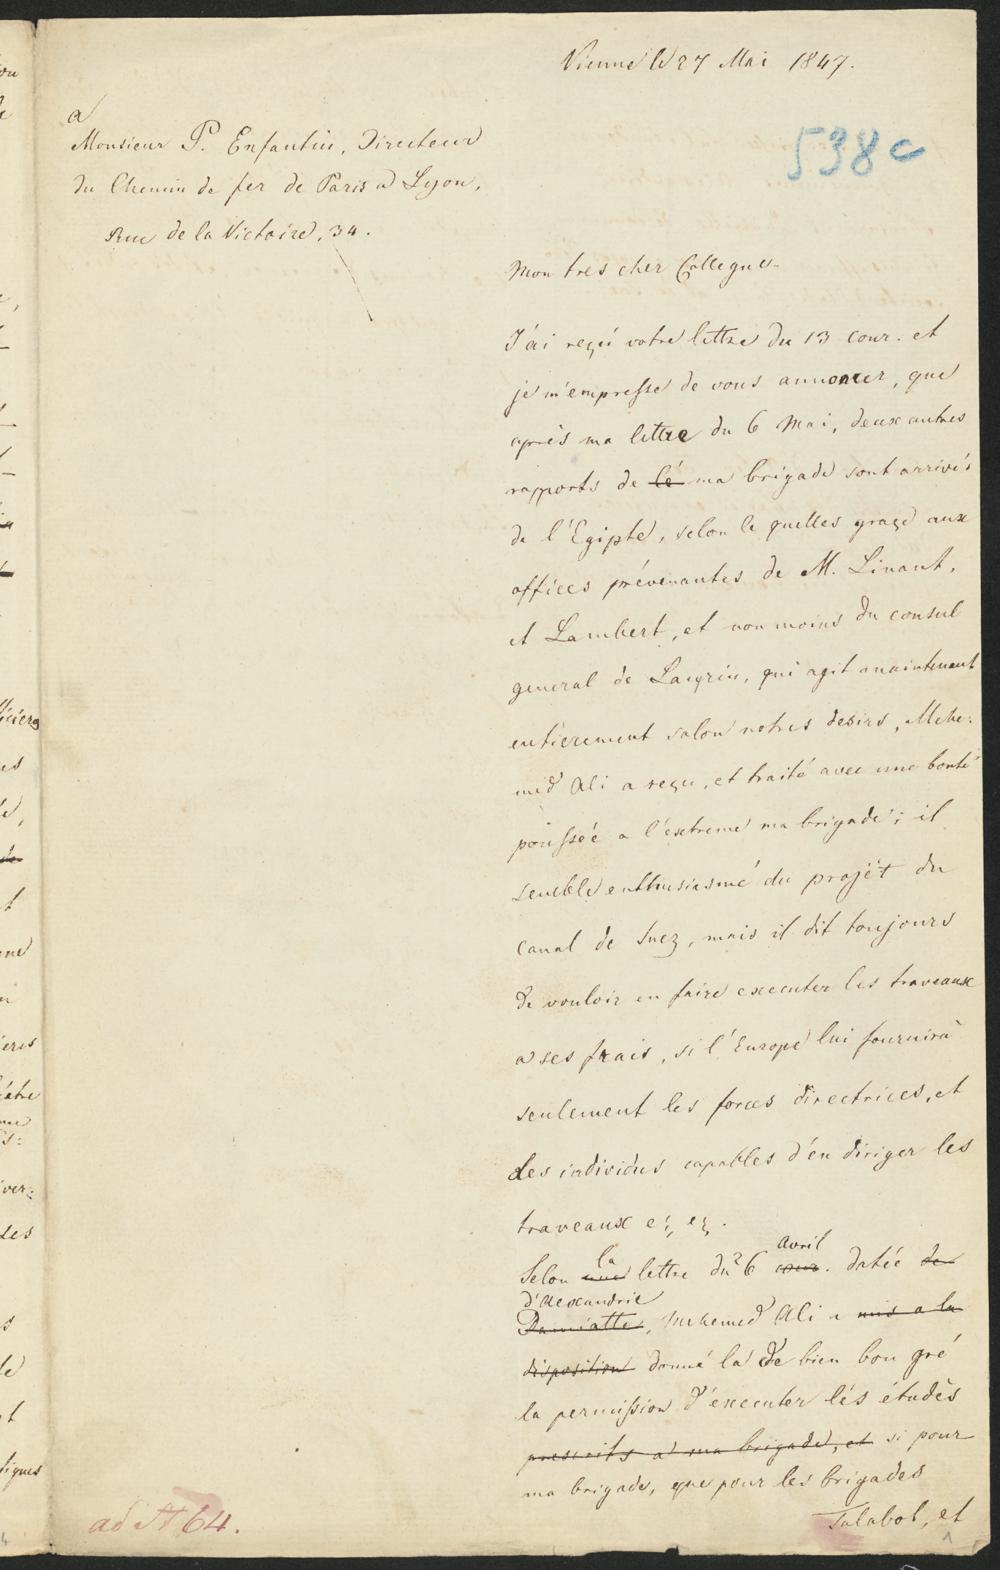 Vienne le 27 Mai 1847.
538c
a
Monsieur P. Enfantin, Directeur
du Chemin de fer de Paris a Lyon,
Rue de la Victoire, 34.
Mon tres cher Collegue
J'ai reçú votre lettre du 13 cour. et
je m'empresse de vous annoncer, que
après ma lettre du 6 Mai, deux autres
rapports de lé ma brigade sont arrivés
de l'Egipte, selon le quelles graçe aux
offices prévenantes de M. Linant,
et Lambert, et non moins du consul
general de Laurin, qui agit maintenant
entierement selon notres desirs, Mehe-
med Ali a reçu, et traité avec une bonté
poussée a l'extreme ma brigade; il
semble enthusiasmé du projèt du
canal de Suez, mais il dit toujours
de vouloir en faire executer les traveaux
a ses frais, si l'Europe lui fournirà
seulement les forces directrices, et
des individus capables d'en diriger les
traveaux
Selon une la lettre du 26 cour. Avril datée de
Damiatte d'Alexandrie, Mehemed Ali a mis a la
disposition donné la de bien bon gré
la permission d'éxecuter lés étudès
prescrits a ma brigade, et si pour
ma brigade, que pour les brigades
Talabot, et
ad N 64.